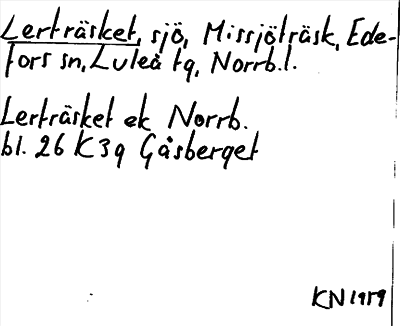 Lerträsket, sjö, Missjöträsk, Ede-
fors sn, Luleå tg, Norrb.l.
Lerträsket ek Norrb.
bl. 26 K 3g Gåsberget